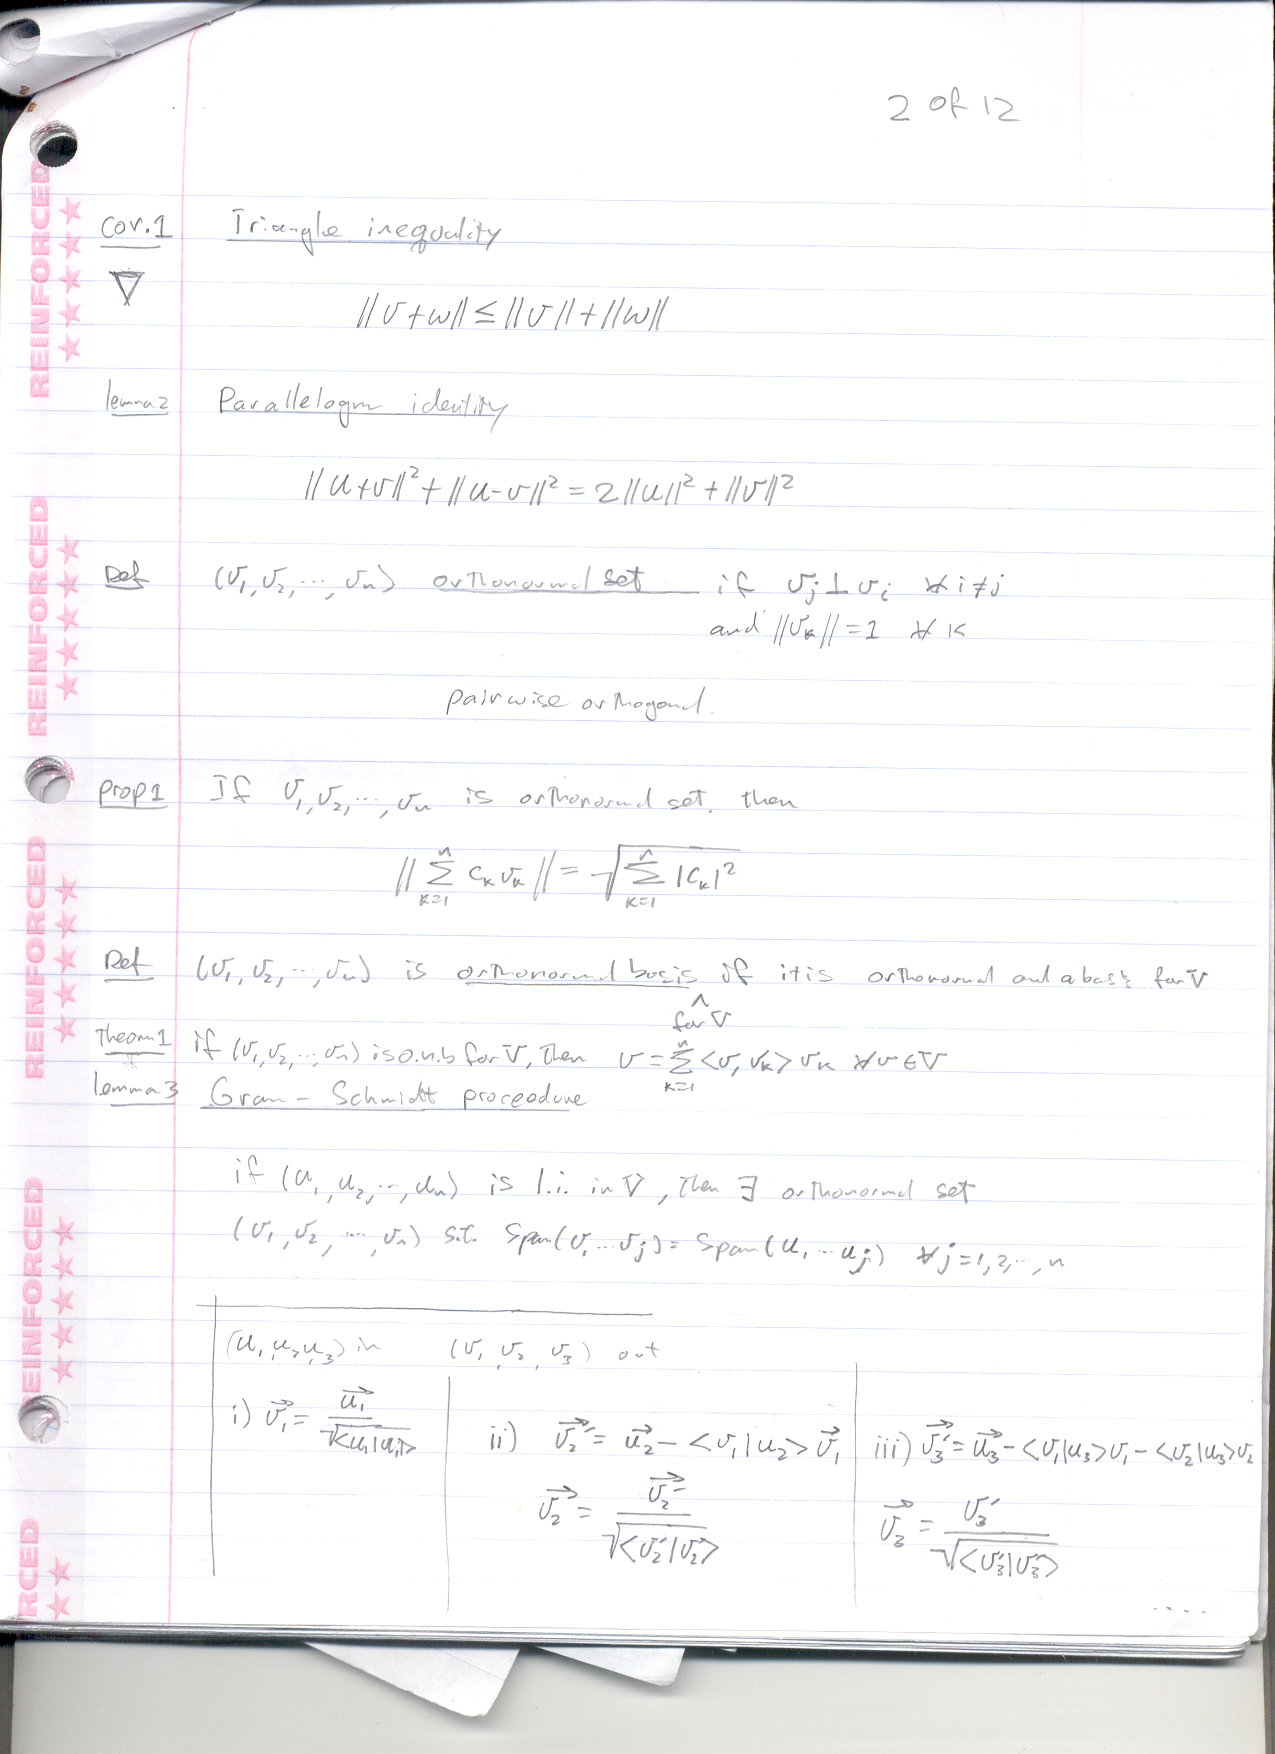 2 of 12
REINFORCED
REINFORCED
REINFORCED
REINFORCED
RCED
Cor.1 Triangle inequality
▽
||v+w|| ≤ ||v|| + ||w||
lemma 2 Parallelogm identity
||u+v||² + ||u-v||² = 2||u||² + ||v||²
Def (v₁, v₂, ..., vₙ) orthonormal set if vⱼ ⊥ vᵢ ∀ i≠j
and ||vₖ|| = 1 ∀ k
pairwise orthogonal.
prop 1 If v₁, v₂, ..., vₙ is orthonormal set, then
||∑ₖ₌₁ⁿ cₖvₖ|| = √(∑ₖ₌₁ⁿ |cₖ|²)
Def (v₁, v₂, ..., vₙ) is orthonormal basis if it is orthonormal and a basis for V
^ for V
Theom 1 if (v₁, v₂, ..., vₙ) is o.n.b for V, then v = ∑ₖ₌₁ⁿ <v, vₖ> vₖ ∀ v ∈ V
lemma 3 Gram - Schmidt proceodure
if (u₁, u₂, ..., uₙ) is l.i. in V, then ∃ orthonormal set
(v₁, v₂, ..., vₙ) s.t. Span(v₁ ... vⱼ) = Span(u₁ ... uⱼ) ∀ j = 1, 2, ..., n
(u₁, u₂, u₃) in (v₁, v₂, v₃) out
i) v⃗₁ = u⃗₁ / √<u₁|u₁>
ii) v⃗₂' = u⃗₂ - <v₁|u₂> v⃗₁
v⃗₂ = v⃗₂' / √<v₂'|v₂'>
iii) v⃗₃' = u⃗₃ - <v₁|u₃>v₁ - <v₂|u₃>v₂
v⃗₃ = v₃' / √<v₃'|v₃'>
....